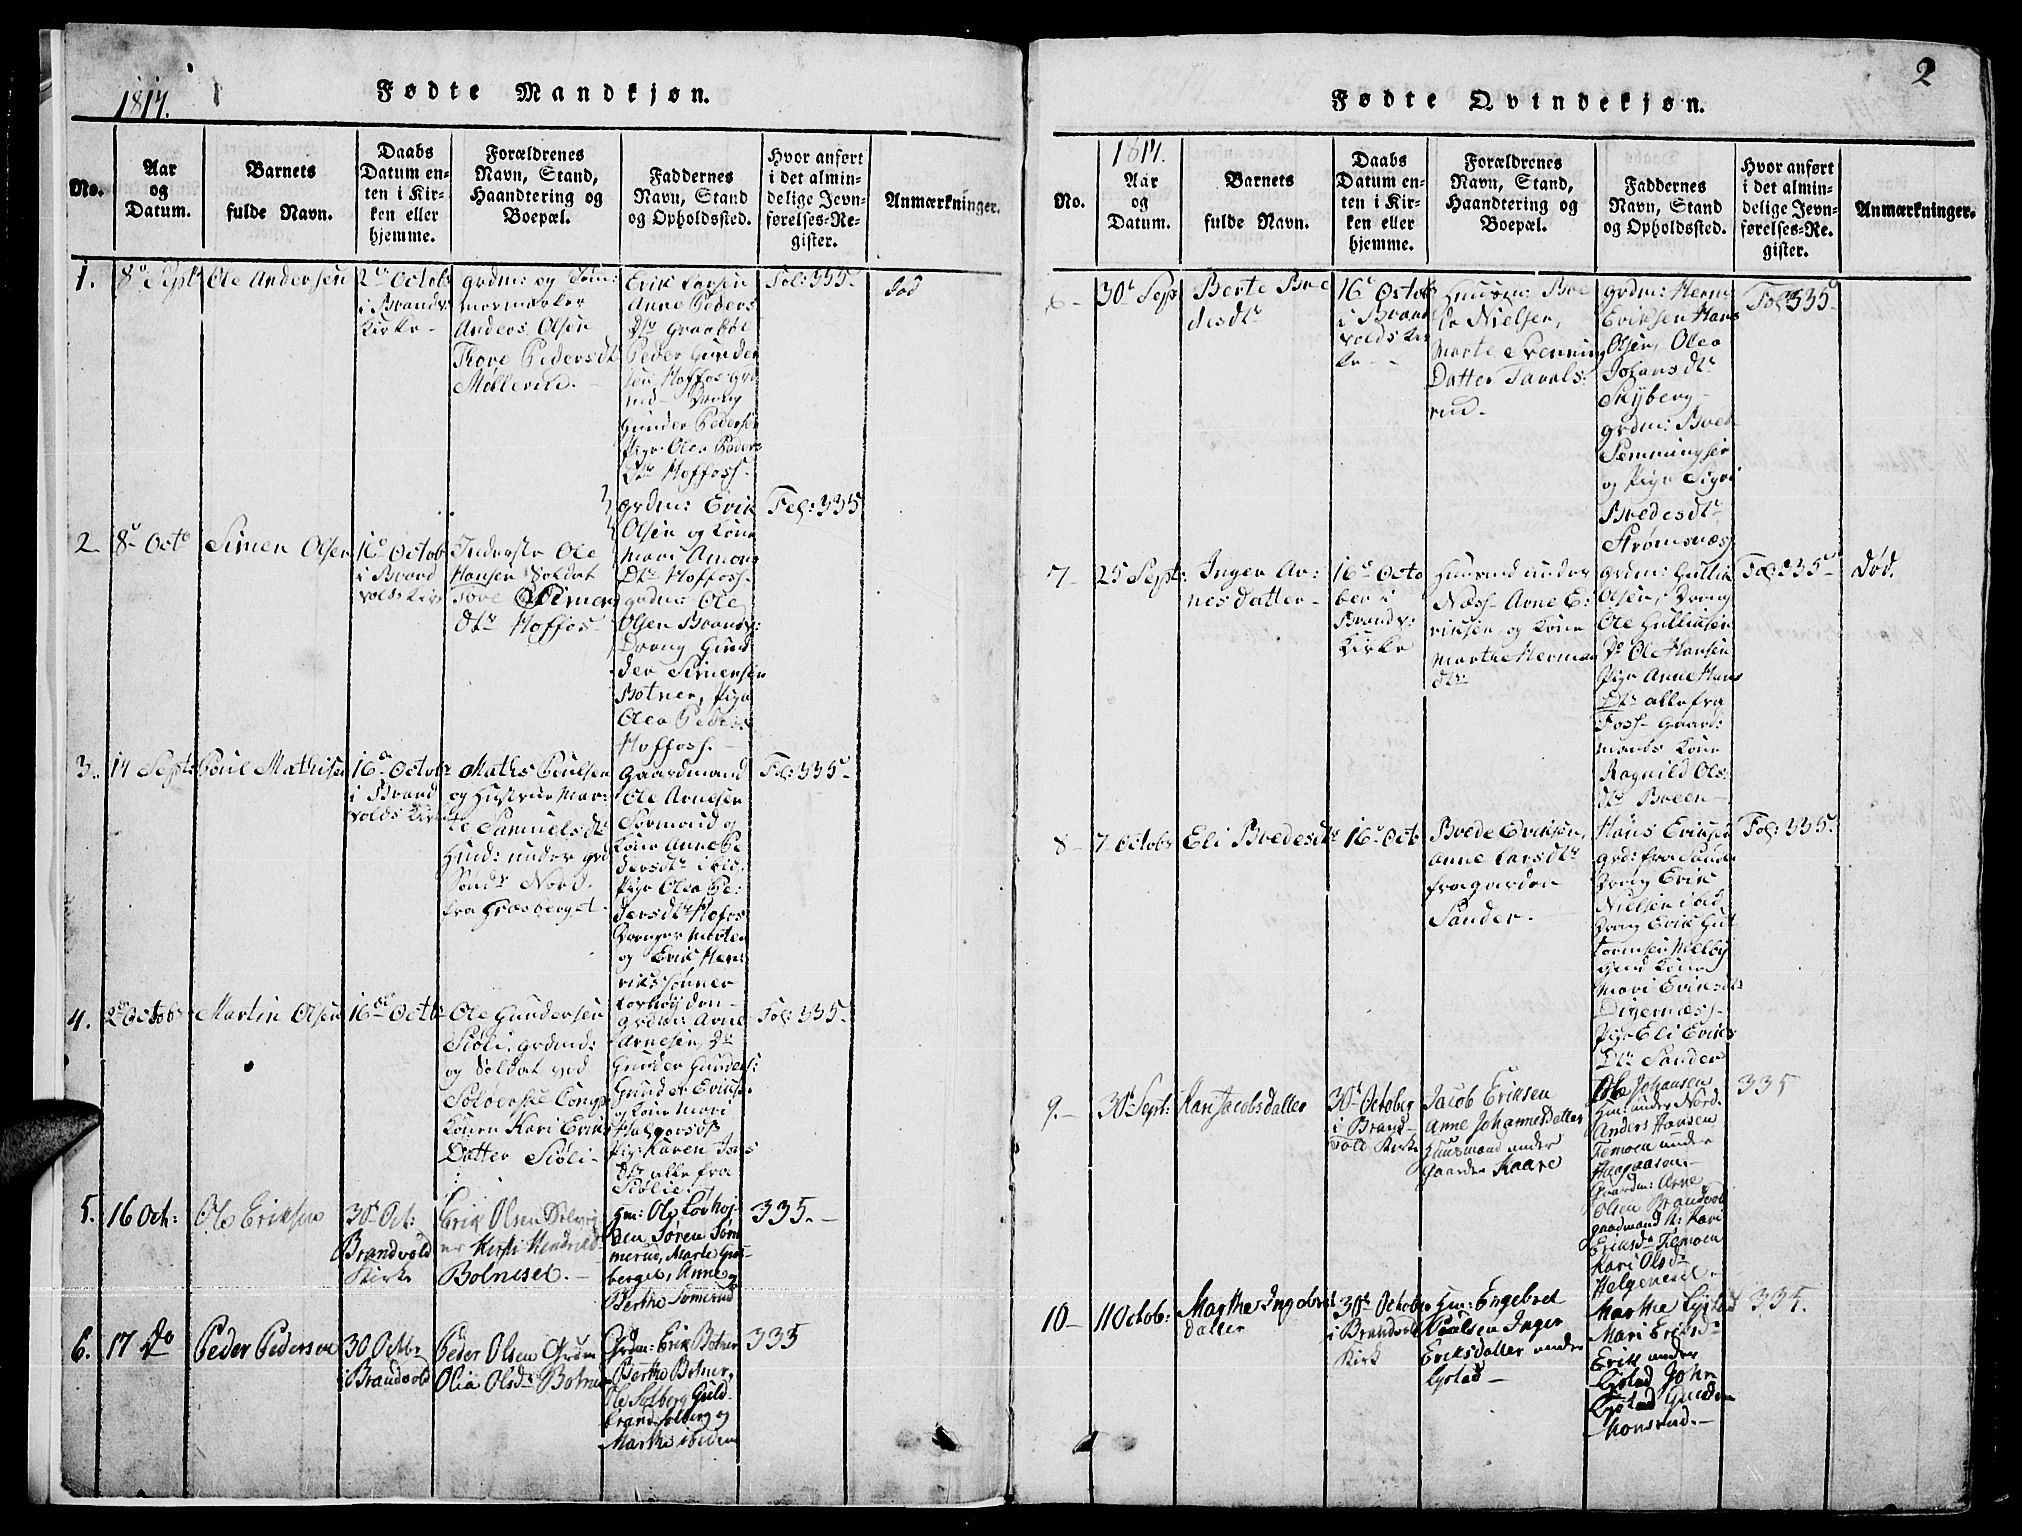 1814.
Fødte Mandkjøn.
No.
Aar
og
Datum.
Barnets
fulde Navn.
Daabs
Datum en-
ten i Kir-
ken eller
hjemme.
Forældrenes
Navn, Stand,
Haandtering og
Boepæl.
Faddernes
Navn, Stand
og Opholdssted.
Hvor anført
i det almin-
delige Jevn-
førelses-Re-
gister.
Anmærkninger.
1.
8de Sept
Ole Andersen
2de Octob
i Brandv
Kirke
grdm: og Tøm-
mermester
Anders Olsen
Thore Pedersdtr
Møllerud.
Erik Larsen
Anne Peders
Dtr Graabøl
Peder Gunder
sen Hoffos grd
md Dreng
Gunder Pedersen
Pige Olea Peders
Dtr Hoffoss.
Fol: 335.
død
2.
8de Octo
Simen Olsen
16de Octob
i Brand
volds Kirk
Ole
Hansen Soldat
Tore Simens
dtr Hoffos
grdm: Erik
Olsen og Kone
Mari Amons
Dtr Hoffoss.
grdm: Ole
Olsen Brandv:
Dreng Gun
der Simensen
Botner, Pige
Olea Peders
Hoffoss.
Fol: 335
3.
14 Sept:
Poul Mathisen
16de Octobr
i Brand
volds Kirk
Maths Poulsen
og Hustrue Mar-
te Samuelsdtr
Husm: under grd
Nord.
fra Græsberget.
Gaardmand
Ole Arnesen
Sormrud og
Kone Anne Pe
dersdtr ibid.
Pige Olea Pe-
dersdtr Hofos
Drenger Morten
og Erik Hen-
riks sønner
Lovhøyden
Fol: 335
4.
2de Octobr
Martin Olsen
16de Octbr
Ole Gundersen
Siøli, grdmd:
og Soldat ved
Solørske Comp
Konen Kari Eriks
Datter Siøli
grdm: Arne
Arnesen, Do
Gunder Gunders:
Gunder Eriks:
og Kone Mari
Halvorsdtr
Pig: Karen Jons
Dtr alle fra
Siølie.
Fol: 335.
5.
16 Oct:
Ole Eriksen
30te Oct:
Brandvold
Kirke
Erik Olsen
Kirsti Henriksd
Botneset.
Hm: Ole Lovhøj-
den Søren Søm
merud, Marte Græs
berget, Anne og
Berthe Sømerud
335.
6.
17 Do
Peder Pedersen
30 Octbr
i Brandvold
Peder Olsen Grdm
Olia Olsdr Botner
Grdm: Erik Botner
Berthe Botner,
Ole Solberg Guld-
brand Solberg og
Marthe ibidem
335
2
Fødte Qvindekjøn.
1814.
No.
Aar
og
Datum.
Barnets
fulde Navn.
Daabs
Datum en-
ten i Kir-
ken eller
hjemme.
Forældrenes
Navn, Stand,
Haandtering og
Boepæl.
Faddernes
Navn, Stand
og Opholdssted.
Hvor anført
i det almin-
delige Jevn-
førelses-Re-
gister.
Anmærkninger.
6
30te Sept
Berte Bre
desdtr
16de Octob
i Brand
volds Kir
ke
Husm: Bre
de Nielsen,
Marte Svenning
Datter Tavals-
rud.
grdm: Herm
Eriksen Hans
Olsen, Olea
Johansdtr
Skyberg
grdm: Brede
Semmingsen
og Pige Sigri
Bredesdtr
Strømsnæss
Fol: 335
7
25 Sept:
Inger Ar-
nesdatter
16de Octo
ber i
Brandv:
Kirke
Huusmd under
Næss Arne E-
riksen, og Kone
Marthe Herman
dtr
grdm: Gullik
Olsen, Dreng
Ole Gulliksen
Do Ole Hansen
Pige Anne Hans
Dtr alle fra
Foss Gaard-
mands Kone
Ragnild Ols
dtr Breen
Fol: 335
død.
8
7 Octobr
Eli Bredesdtr
16de Octb
Brede Eriksen,
Anne Larsdtr
fra gaarden
Sander.
Hans Eriksen
grd: fra Sander
Dreng Erik
Nielsen ibid,
Dreng Erik Gut
tormsen Melby
Gund Kone
Mari Eriksdtr
Digernæss
Pige Eli Eriks
Dtr Sander
Fol: 335.
9.
30te Sept:
Kari Jacobsdatter
30te October
i Brand-
vold Kirke
Jacob Eriksen
Anne Johannesdatter
Huusmand under
Gaarden Kaare
Ole Johansen
Hm: under Nord.
Anders Hansen
Temoen under
Haagaasen.
Gaardm: Arne
Olsen Brandvol
gaardmand K: Kari
Eriksdr Temoen
Kari Olsdr
Helgeneset.
335
10
11 Octob:
Marthe Ingebret
datter
30te October
i Brandvold
Kirk
Hm: Engebret
Poulsen Inger
Eriksdatter under
Lystad
Marthe Lystad
Mari Eriksdr
Erik under
Lystad John
Lystad Gunder
Monsrud.
335.